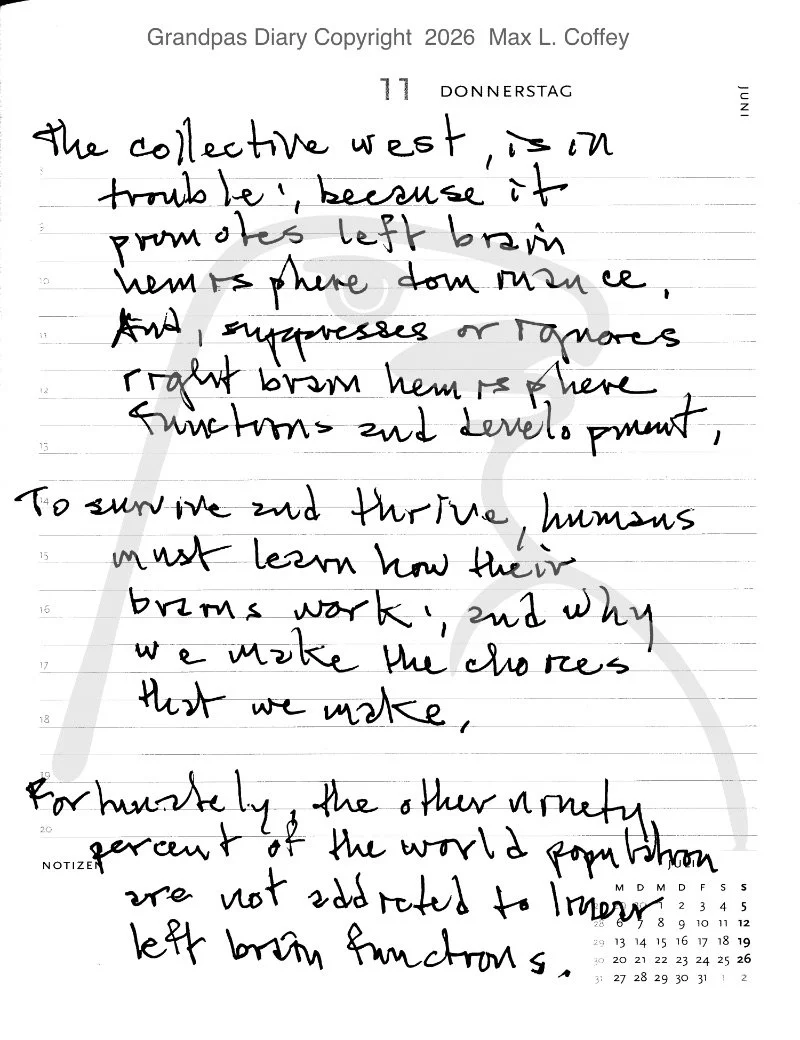 Grandpas Diary Copyright 2026 Max L. Coffey
11 DONNERSTAG
JUNI
The collective west, is in
trouble:, because it
promotes left brain
hemisphere dominance.
And, suppresses or ignores
right brain hemisphere
functions and development.
To survive and thrive, humans
must learn how their
brains work:, and why
we make the choices
that we make.
Fortunately, the other ninety
percent of the world population
are not addicted to linear
left brain functions.
8
9
10
11
12
13
14
15
16
17
18
19
20
NOTIZEN
JULI
M D M D F S S
1 2 3 4 5
28 6 7 8 9 10 11 12
29 13 14 15 16 17 18 19
30 20 21 22 23 24 25 26
31 27 28 29 30 31 1 2